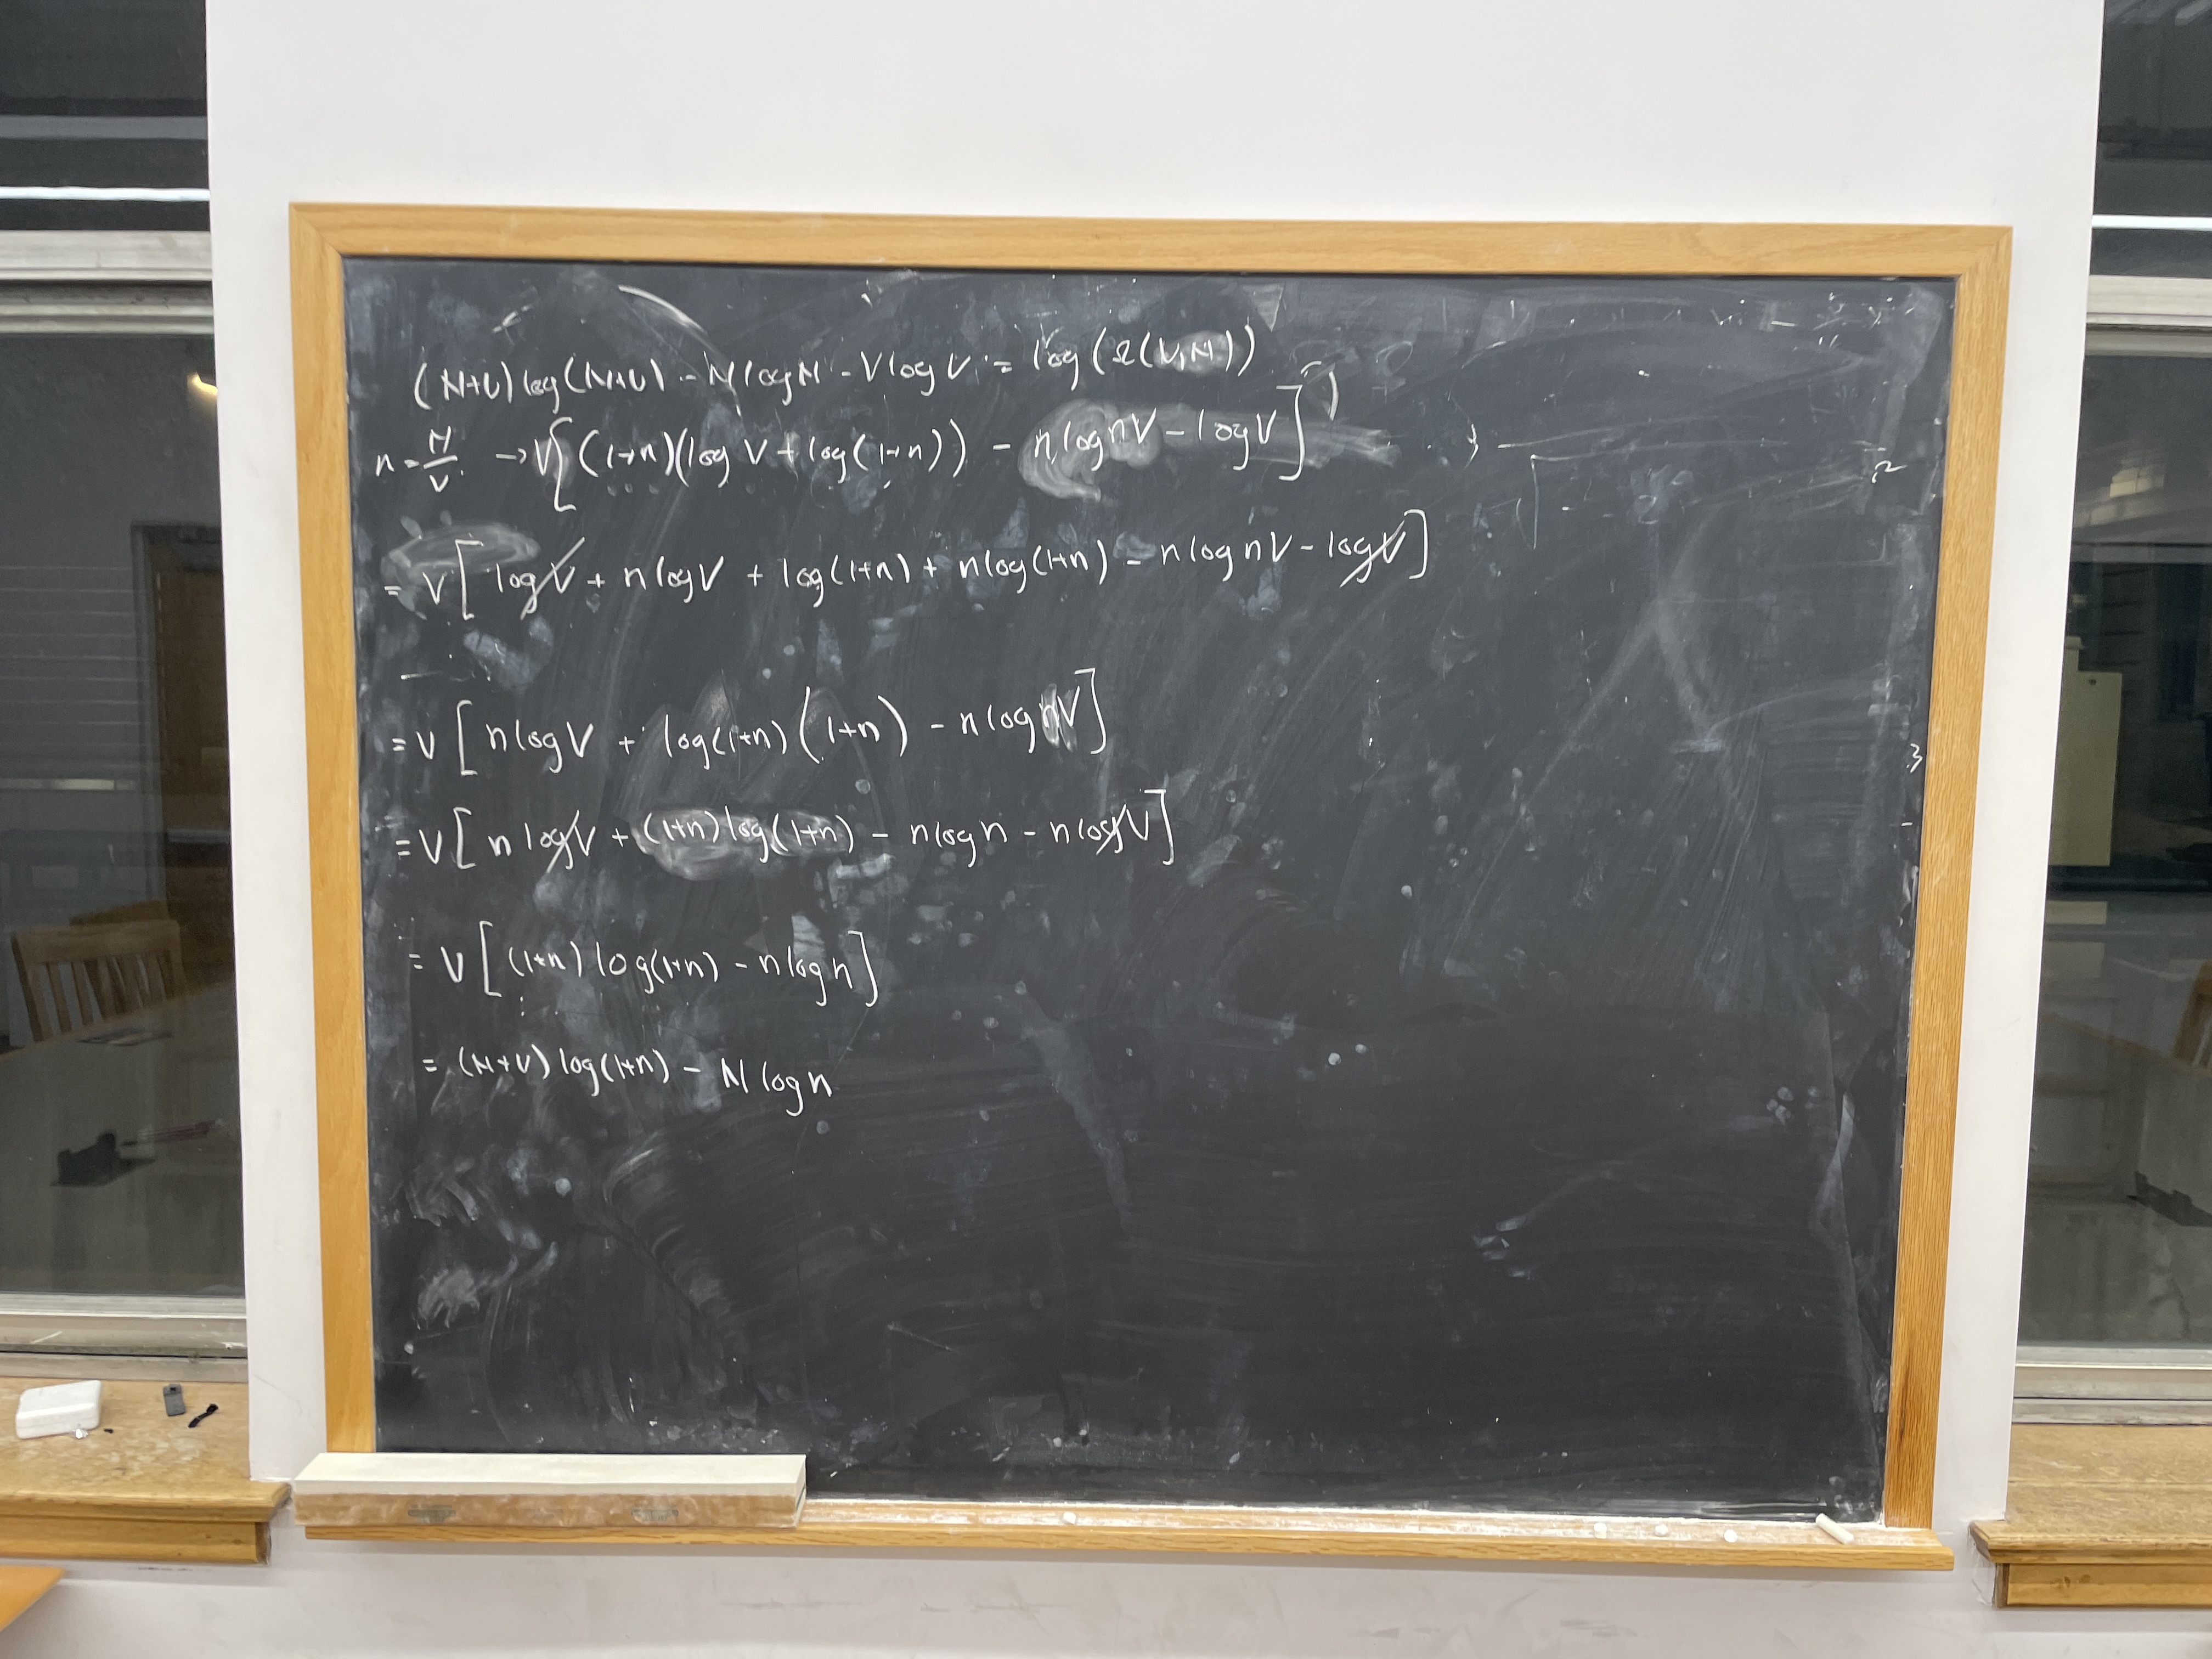 (N+V) log(N+V) - N log N - V log V = log(Ω(V,N))
n = N/V → V[(1+n)(log V + log(1+n)) - n log nV - log V]
= V[log V + n log V + log(1+n) + n log(1+n) - n log nV - log V]
= V[n log V + log(1+n)(1+n) - n log nV]
= V[n log V + (1+n) log(1+n) - n log n - n log V]
= V[(1+n) log(1+n) - n log n]
= (N+V) log(1+n) - N log n